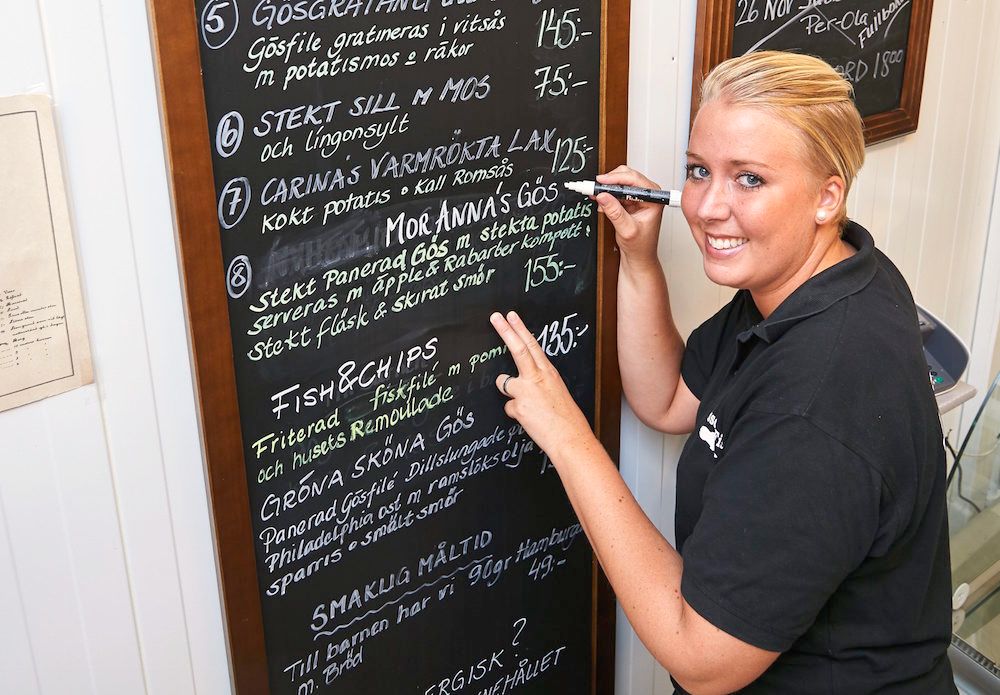 5
Gösfile gratineras i vitsås
m potatismos o räkor
145:-
6
STEKT SILL M MOS
75:-
och lingonsylt
7
CARINA'S VARMRÖKTA LAX
125:-
KOKT POTATIS o KALL ROMSÅS
MOR ANNA'S GÖS
8
STEKT PANERAD GÖS M STEKTA POTATIS
SERVERAS M ÄPPLE & RABARBER KOMPOTT.
STEKT FLÄSK & SKIRAT SMÖR
155:-
FISH & CHIPS
135:-
Friterad fiskfilé m
och husets REMOULADE
GRÖNA SKÖNA GÖS
Panerad Gösfilé Dillslungade
Philadelphia ost m ramslöksolja
sparris o smält smör
SMAKLIG MÅLTID
Till barnen har vi 90gr Hamburgare
M. Bröd
49:-
?
26 Nov
Per-Ola
Fullbokad
1800